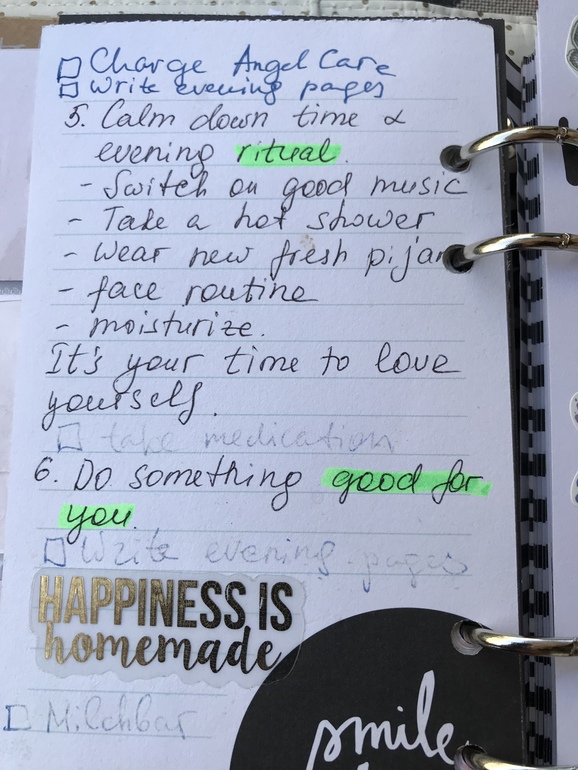 ☐ Charge Angel Care
☐ Write evening pages
5. Calm down time &
evening ritual.
- Switch on good music
- Take a hot shower
- Wear new fresh pijam
- face routine
- moisturize.
It's your time to love
yourself.
☐ take medication
6. Do something good for
you.
☐ Write evening pages
HAPPINESS IS
homemade
☐ Milchbar
smile